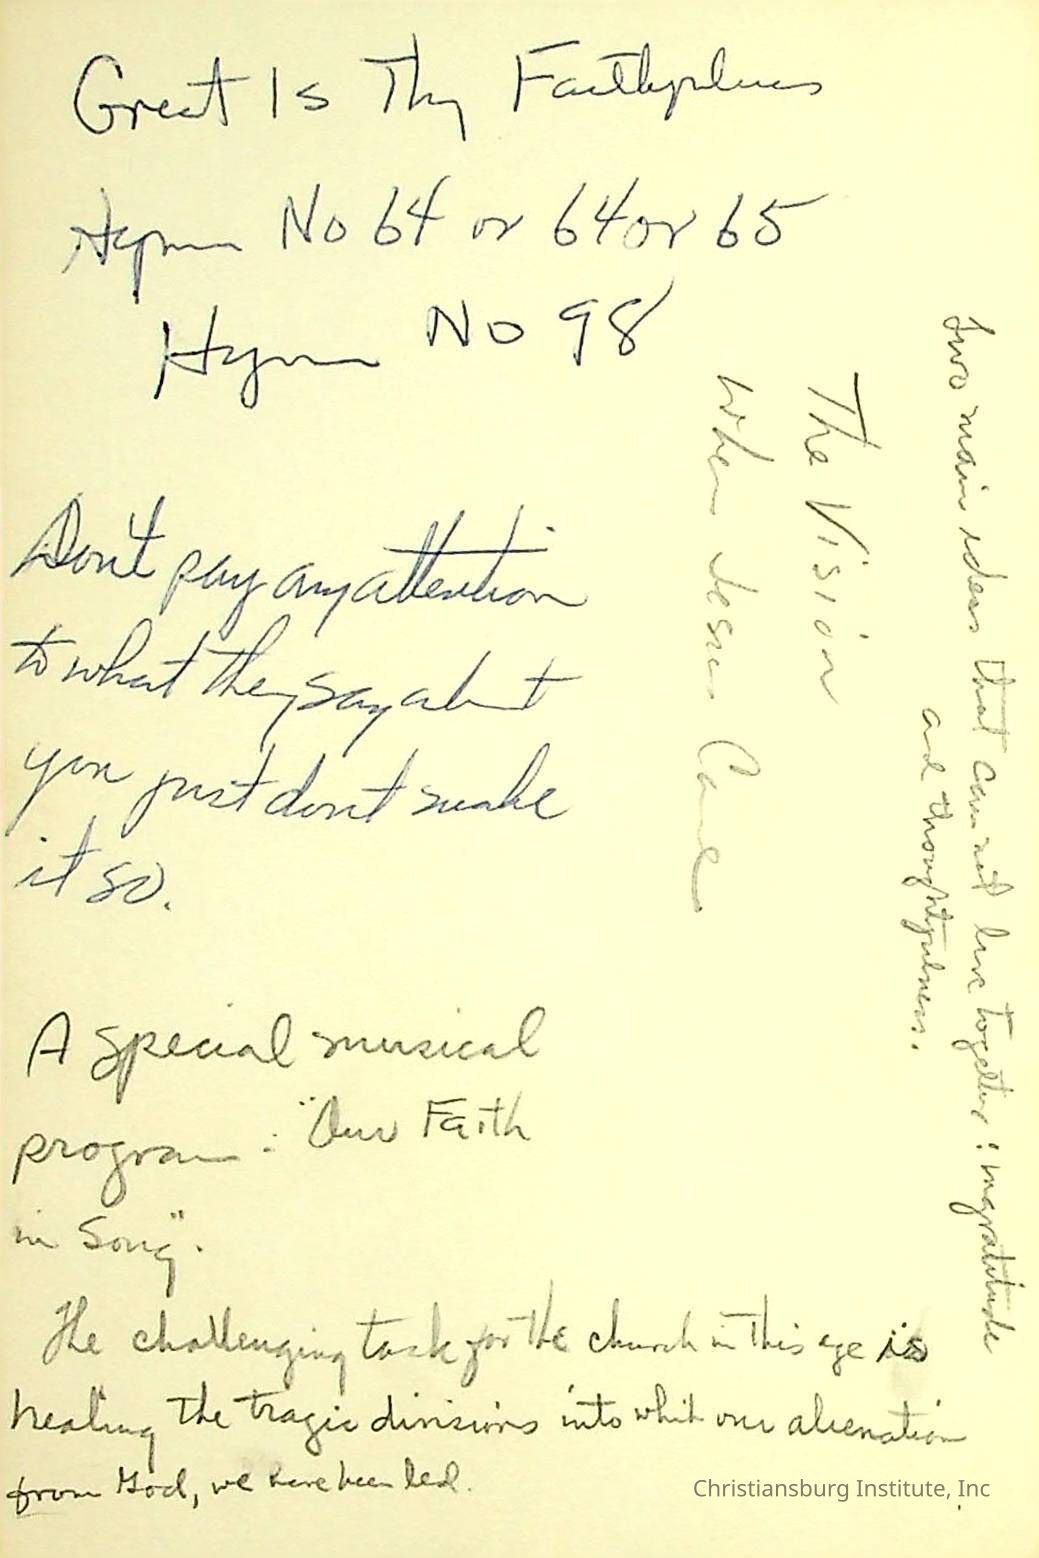 Great Is Thy Faithfulness
Hymn No 64 or 64 or 65
Hymn No 98
Don't pay any attention
to what they say about
you just dont make
it so.
The Vision
When Jesus Came
Two main ideas that can not live together: ingratitude
and thoughtfulness.
A special musical
program: "Our Faith
in Song".
The challenging task for the church in this age is
healing the tragic divisions into which our alienation
from God, we have been led.
Christiansburg Institute, Inc